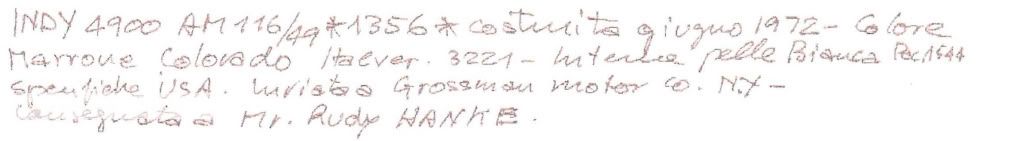 INDY 4900 AM 116/49*1356* costruita giugno 1972 - Colore
Marrone Colorado Italver. 3221 - Interno pelle Bianca Pac.1544
specifiche USA. Inviata a Grossman motor co. N.Y -
Consegnata a Mr. Rudy HANKE.